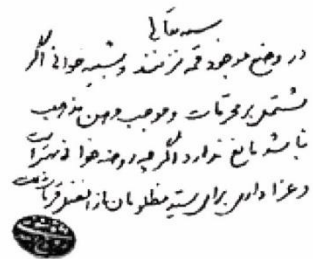 بسمه تعالی
در وضع موجود قمه نزنند و شبیه خوانی اگر
مشتمل بر محرمات و موجب وهن مذهب
نباشد مانع ندارد اگرچه روضه خوانی بهتر است
و عزاداری برای سید مظلومان از افضل قربات است